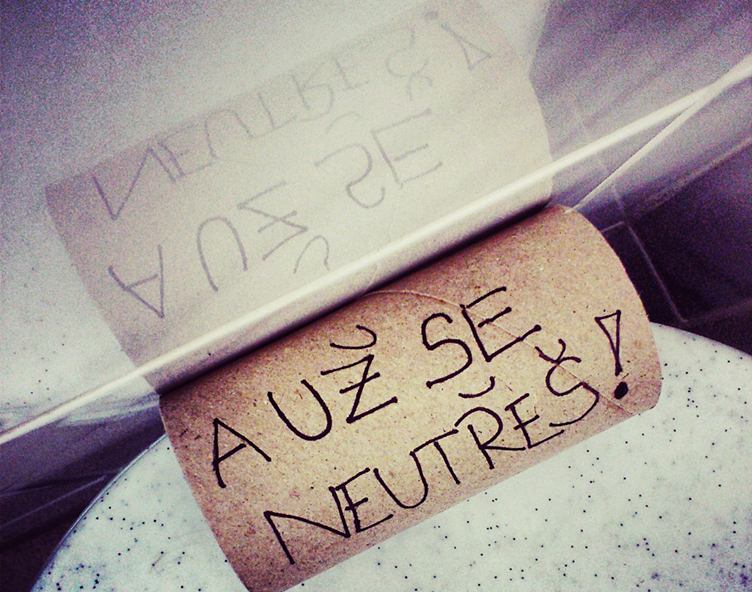 A UŽ SE
NEUTŘEŠ!